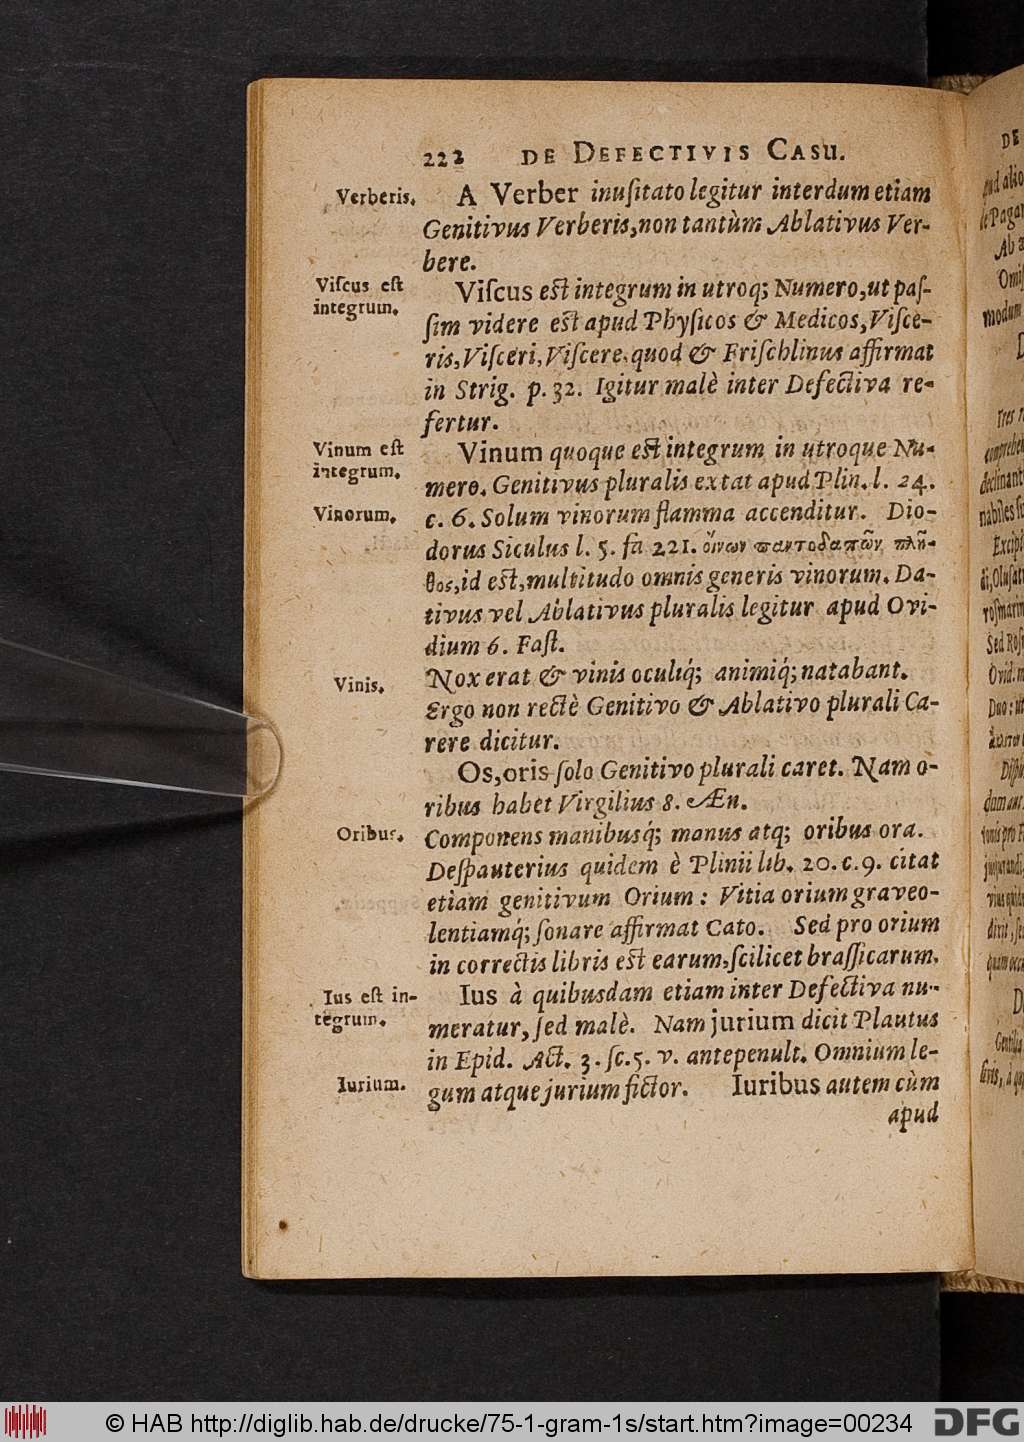 222 DE DEFECTIVIS CASU.
Verberis.
A Verber inuſitato legitur interdum etiam
Genitivus Verberis, non tantùm Ablativus Ver-
bere.
Viſcus eſt
integrum.
Viſcus eſt integrum in utroq; Numero, ut paſ-
ſim videre eſt apud Phyſicos & Medicos, Viſce-
ris, Viſceri, Viſcere, quod & Friſchlinus affirmat
in Strig. p. 32. Igitur malè inter Defectiva re-
fertur.
Vinum eſt
integrum.
Vinum quoque eſt integrum in utroque Nu-
mero. Genitivus pluralis extat apud Plin. l. 24.
Vinorum.
c. 6. Solum vinorum flamma accenditur. Dio-
dorus Siculus l. 5. fa 221. οἴνων παντοδαπῶν πλῆ-
θος, id eſt, multitudo omnis generis vinorum. Da-
tivus vel Ablativus pluralis legitur apud Ovi-
dium 6. Faſt.
Vinis.
Nox erat & vinis oculiq́; animiq́; natabant.
Ergo non rectè Genitivo & Ablativo plurali Ca-
rere dicitur.
Os, oris ſolo Genitivo plurali caret. Nam o-
ribus habet Virgilius 8. Æn.
Oribus.
Componens manibusq́; manus atq; oribus ora.
Deſpauterius quidem è Plinii lib. 20. c. 9. citat
etiam genitivum Orium: Vitia orium graveo-
lentiamq́; ſonare affirmat Cato. Sed pro orium
in correctis libris eſt earum, ſcilicet braſſicarum.
Ius eſt in-
tegrum.
Ius à quibusdam etiam inter Defectiva nu-
meratur, ſed malè. Nam jurium dicit Plautus
in Epid. Act. 3. ſc. 5. v. antepenult. Omnium le-
Iurium.
gum atque jurium fictor. Iuribus autem cùm
apud
© HAB http://diglib.hab.de/drucke/75-1-gram-1s/start.htm?image=00234
DFG